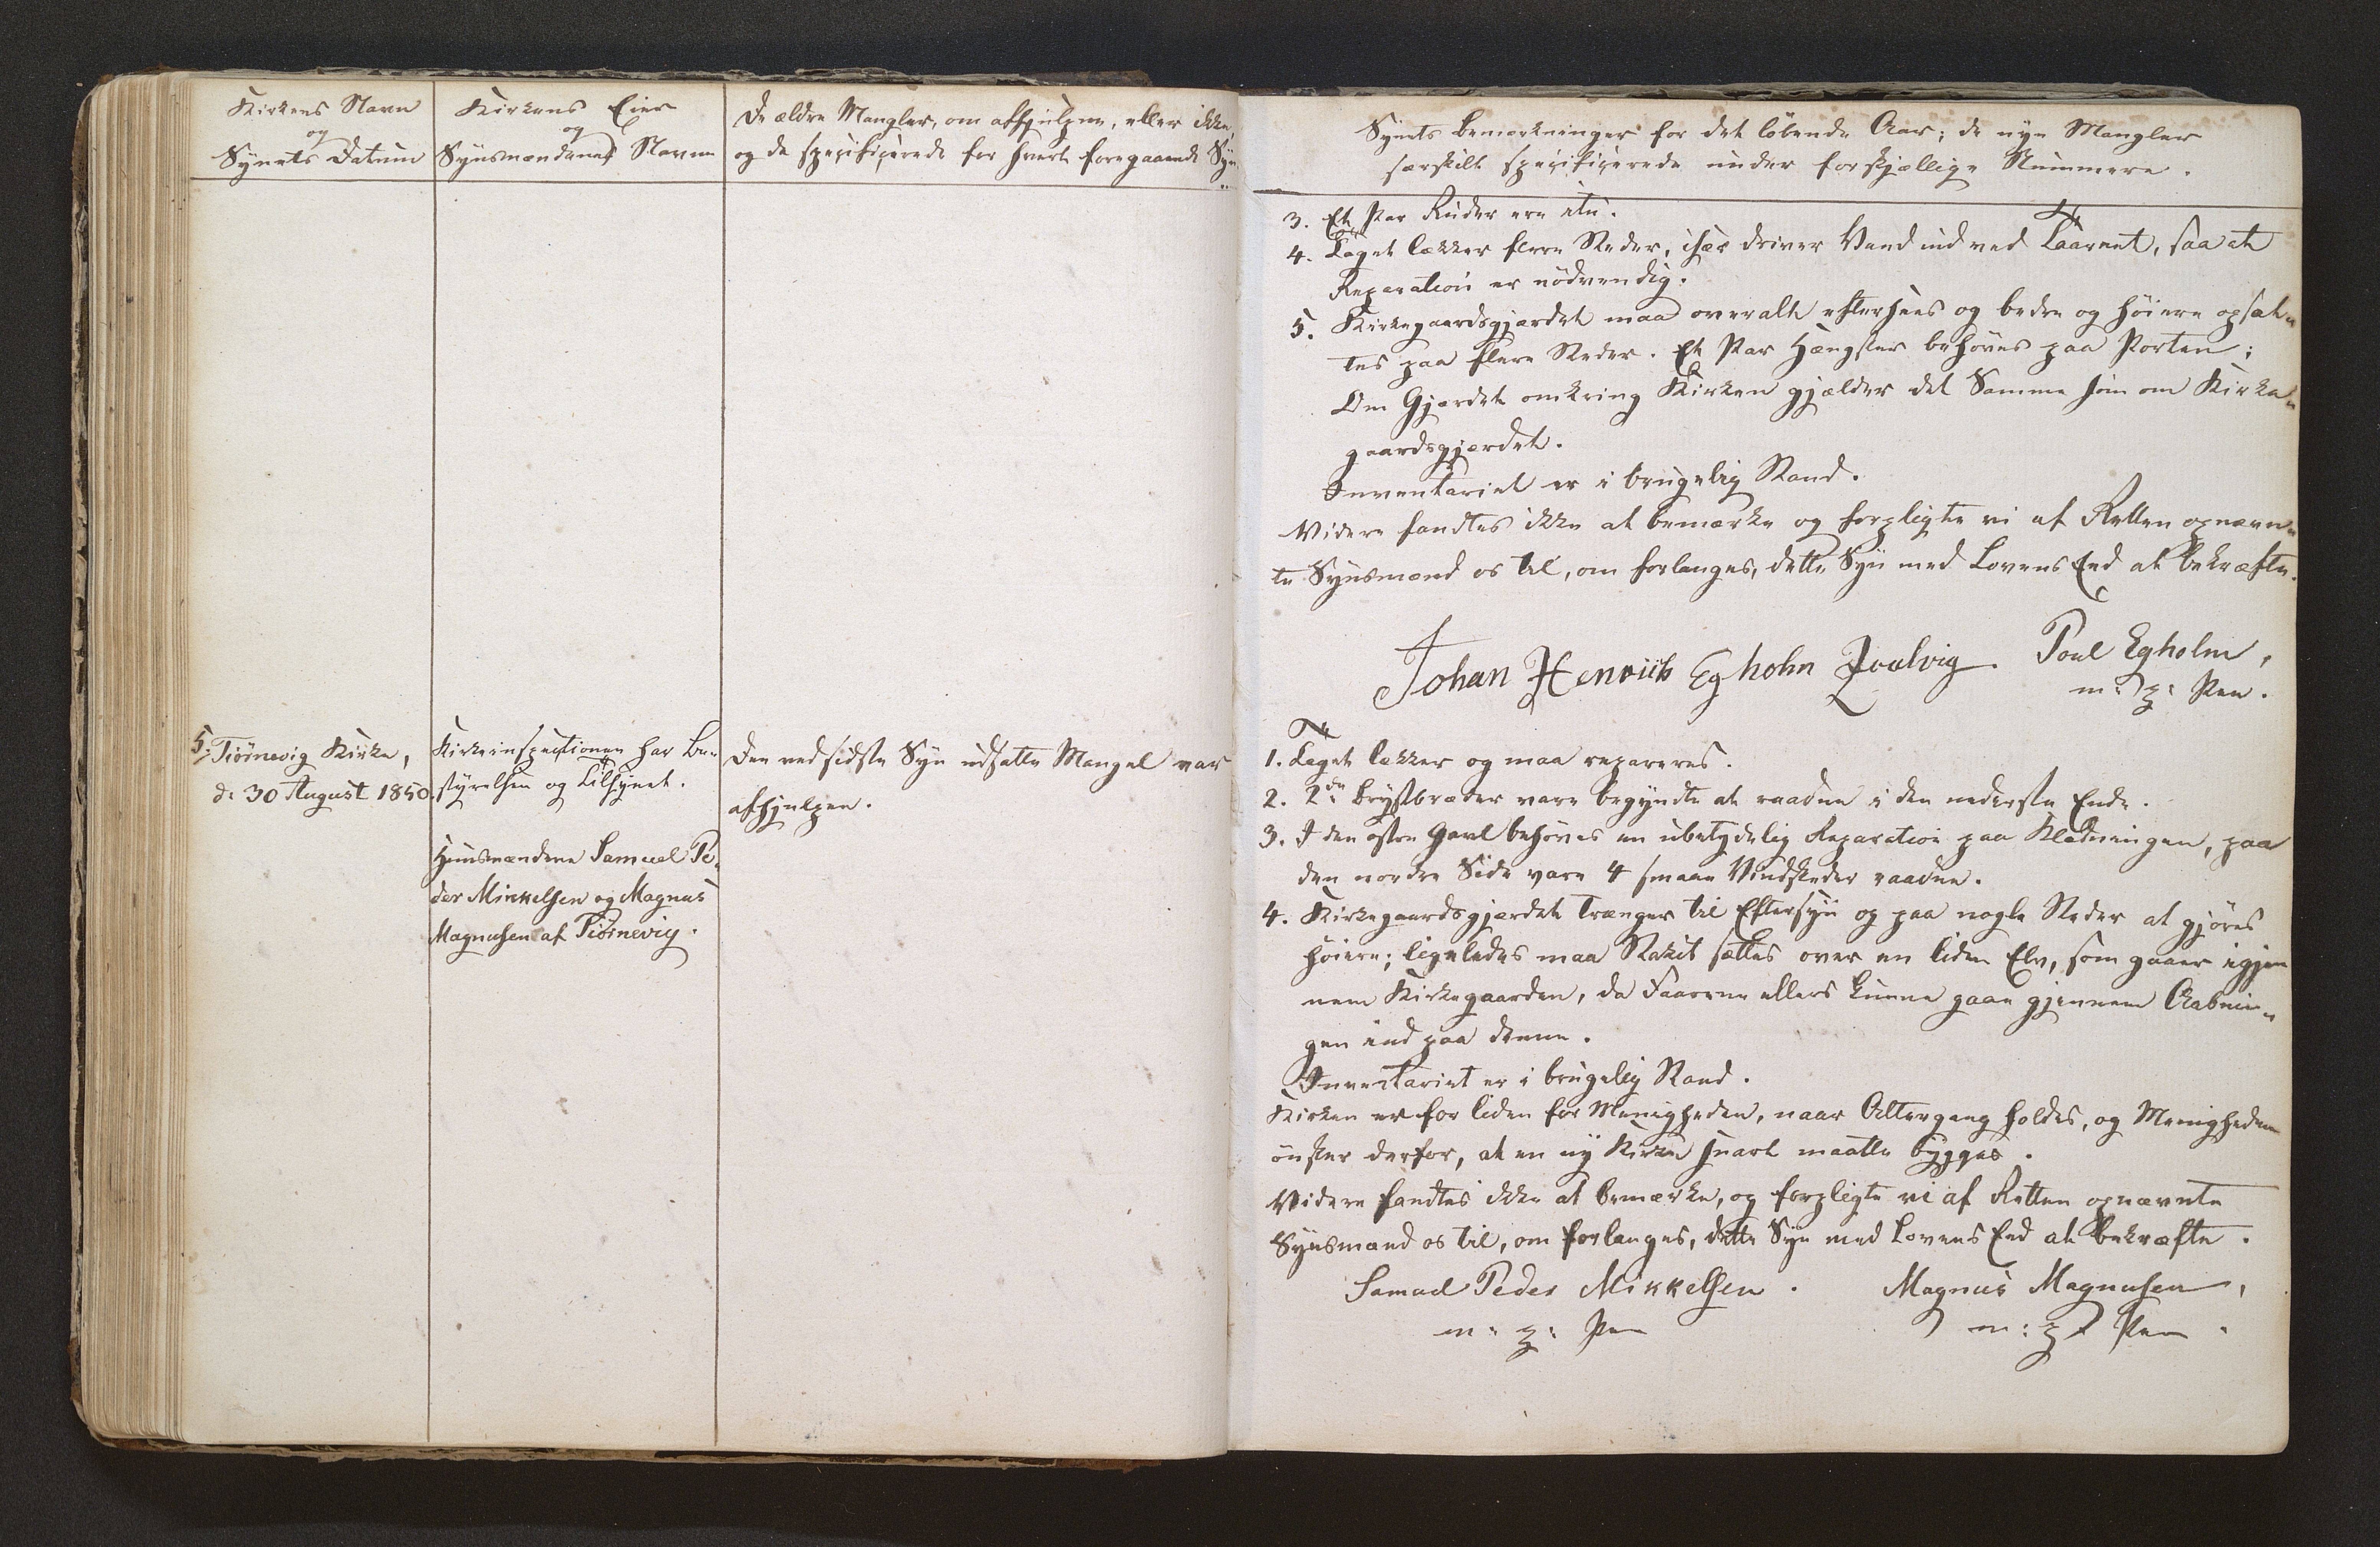 Kirkens Navn
og
Synets Datum
Kirkens Eier
og
Synsmændenes Navne
De ældre Mangler, om afhjulpne, eller ikke,
og de specificerede for hvert foregaaende Syn
5. Tiörnevig Kirke,
d: 30 August 1850.
Kirkeinspectionen har Be-
styrelsen og Tilsynet.
Huusmændene Samuel Pe-
der Mikkelsen og Magnus
Magnusen af Tiörnevig.
Den ved sidste Syn udsatte Mangel var
afhjulpen.
Synets Bemærkninger for det löbende Aar; de nye Mangler
særskilt specificerede under forskjællige Nummere.
3. Et Par Ruder ere itu.
4. Taget lækker flere Steder, især driver Vand ind ved Taarnet, saa at
Reparation er nödvendig.
5. Kirkegaardsgjærdet maa overalt eftersees og bedre og höiere opsæt-
tes paa flere Steder. Et Par Hængsler behöves paa Porten;
Om Gjærdet omkring Kirken gjælder det Samme som om Kirke-
gaardsgjærdet.
Inventariet er i brugelig Stand.
Videre fandtes ikke at bemærke og forpligte vi af Retten opnævn-
te Synsmænd os til, om forlanges, dette Syn med Lovens Eed at bekræfte.
Johan Henrik Egholm Qvalvig. Poul Egholm,
m: p: Pen.
1. Taget lækker og maa repareres.
2. 2de Brystbræder vare begyndte at raadne i den nederste Ende.
3. I den östre Gavl behöves en ubetydelig Reparation paa Klædningen, paa
den nordre Side vare 4 smaae Vindskeder raadne.
4. Kirkegaardsgjærdet trænger til Eftersyn og paa nogle Steder at gjöres
höiere; ligeledes maa Stakit sættes over en liden Elv, som gaaer igjen
nem Kirkegaarden, da Faarene ellers kunne gaae gjennem Aabnin-
gen ind paa denne.
Inventariet er i brugelig Stand.
Kirken er for liden for Menigheden, naar Altergang holdes, og Menigheden
önsker derfor, at en ny Kirke snart maatte bygges.
Videre fandtes ikke at bemærke, og forpligte vi af Retten opnævnte
Synsmænd os til, om forlanges, dette Syn med Lovens Eed at bekræfte.
Samuel Peder Mikkelsen. Magnus Magnusen,
m: p: Pen m: p: Pen.